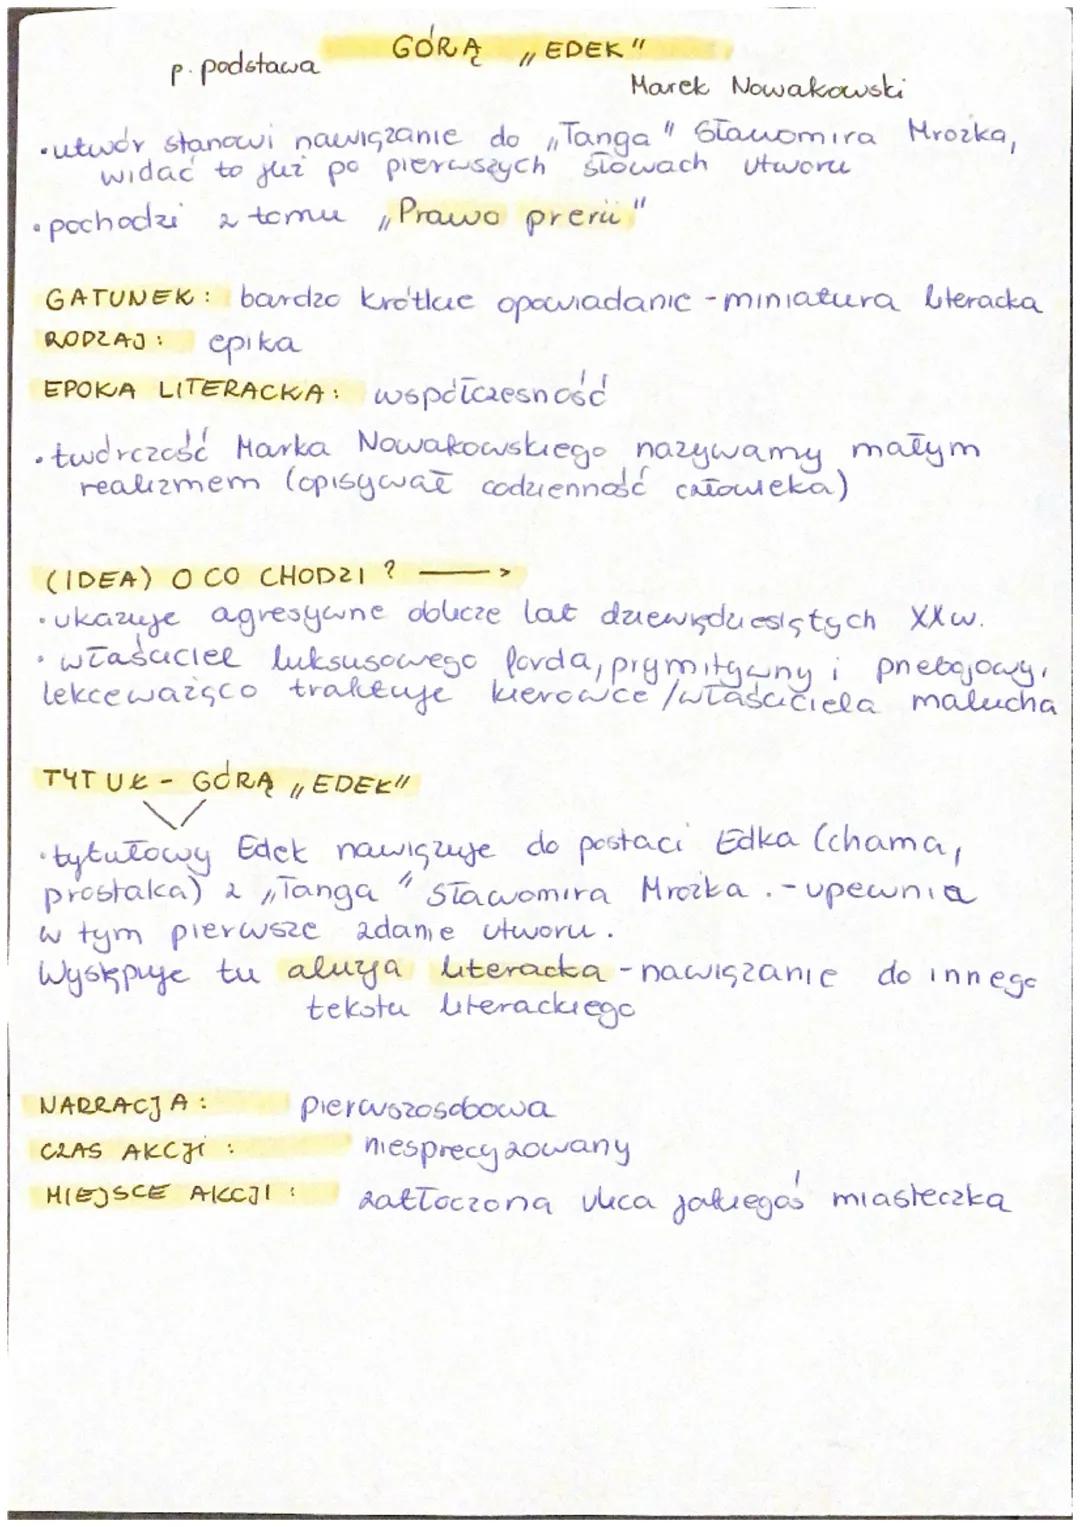 GÓRĄ „EDEK"
p. podstawa
Marek Nowakowski
• utwór stanowi nawiązanie do „Tanga" Sławomira Mrożka,
widać to już po pierwszych słowach utworu
• pochodzi z tomu „Prawo prerii"
GATUNEK: bardzo krótkie opowiadanie - miniatura literacka
RODZAJ: epika
EPOKA LITERACKA: współczesność
• twórczość Marka Nowakowskiego nazywamy małym
realizmem (opisywał codzienność człowieka)
(IDEA) O CO CHODZI? →
• ukazuje agresywne oblicze lat dziewiędziesiątych XX w.
• właściciel luksusowego forda, prymitywny i przebojowy,
lekceważąco traktuje kierowce/właściciela malucha
TYTUŁ - GÓRĄ „EDEK"
• tytułowy Edek nawiązuje do postaci Edka (chama,
prostaka) z „Tanga" Sławomira Mrożka. - upewnia
w tym pierwsze zdanie utworu.
Występuje tu aluzja literacka - nawiązanie do innego
tekstu literackiego
NARRACJA: pierwszosobowa
CZAS AKCJI: niesprecyzowany
MIEJSCE AKCJI: zatłoczona ulica jakiegoś miasteczka